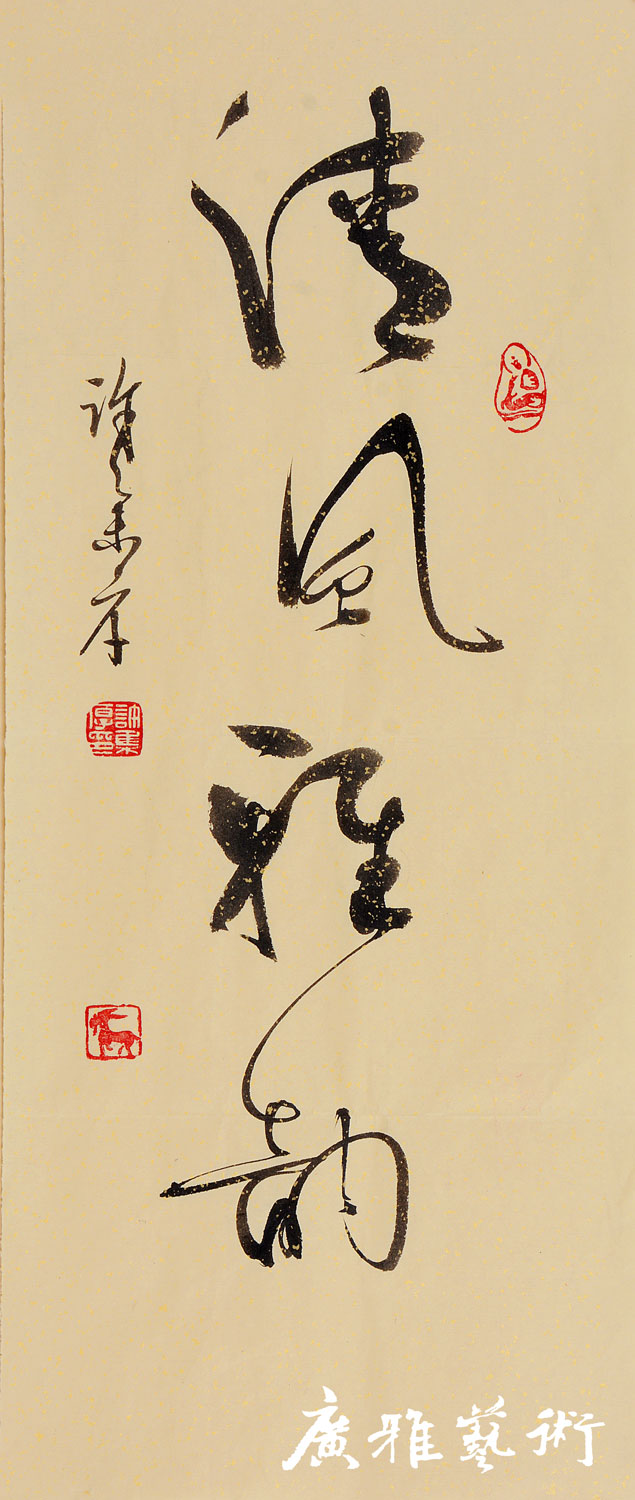 清風雅韵
許集厚
許集厚
廣雅藝術